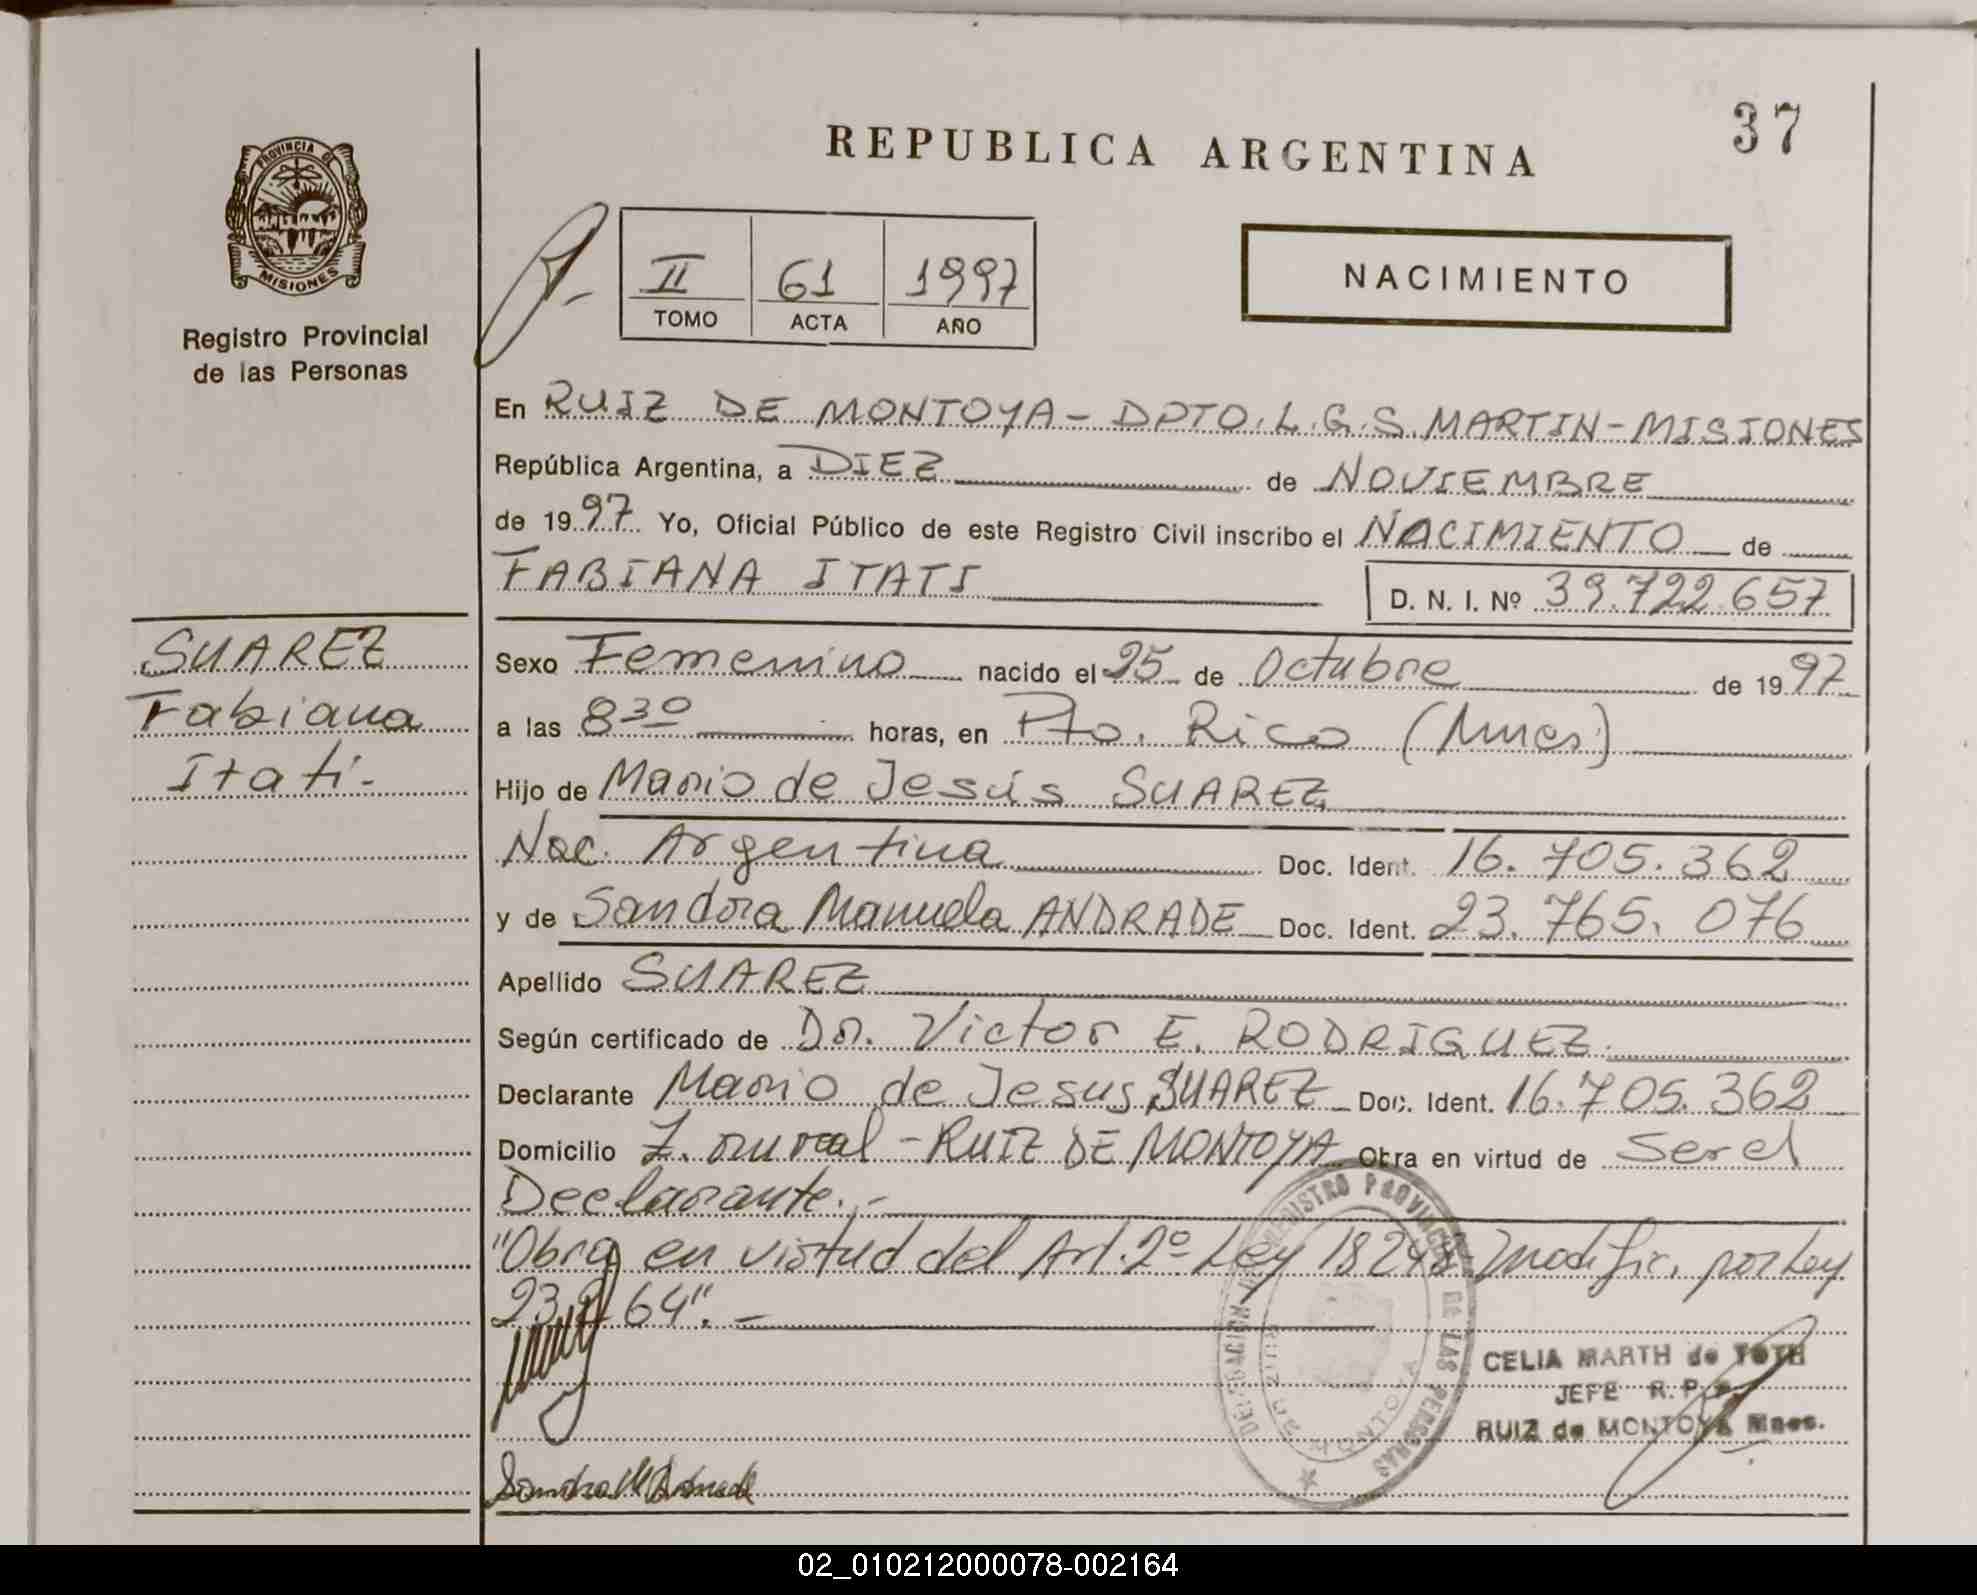 37
REPUBLICA ARGENTINA
PROVINCIA DE
MISIONES
Registro Provincial
de las Personas
II 61 1997
TOMO ACTA AÑO
NACIMIENTO
En RUIZ DE MONTOYA - DPTO. L.G.S. MARTIN - MISIONES
República Argentina, a DIEZ de NOVIEMBRE
de 1997 Yo, Oficial Público de este Registro Civil inscribo el NACIMIENTO de
FABIANA ITATI D. N. I. Nº 39.722.657
SUAREZ
Fabiana
Itatí-
Sexo Femenino nacido el 25 de Octubre de 1997
a las 8 30 horas, en Pto. Rico (Mnes)
Hijo de Mario de Jesús SUAREZ
Nac. Argentina Doc. Ident. 16.705.362
y de Sandra Manuela ANDRADE Doc. Ident. 23.765.076
Apellido SUAREZ
Según certificado de Dr. Victor E. RODRIGUEZ
Declarante Mario de Jesus SUAREZ Doc. Ident. 16.705.362
Domicilio Z. rural - RUIZ DE MONTOYA Obra en virtud de Ser el
Declarante.-
"Obra en virtud del Art. 2º Ley 18248 Modific. por Ley
23. 64".-
DELEGACION REGISTRO PROVINCIAL DE LAS PERSONAS
RUIZ DE MONTOYA
CELIA MARTH de TOTH
JEFE R.P.P.
RUIZ de MONTOYA Mnes.
02_010212000078-002164